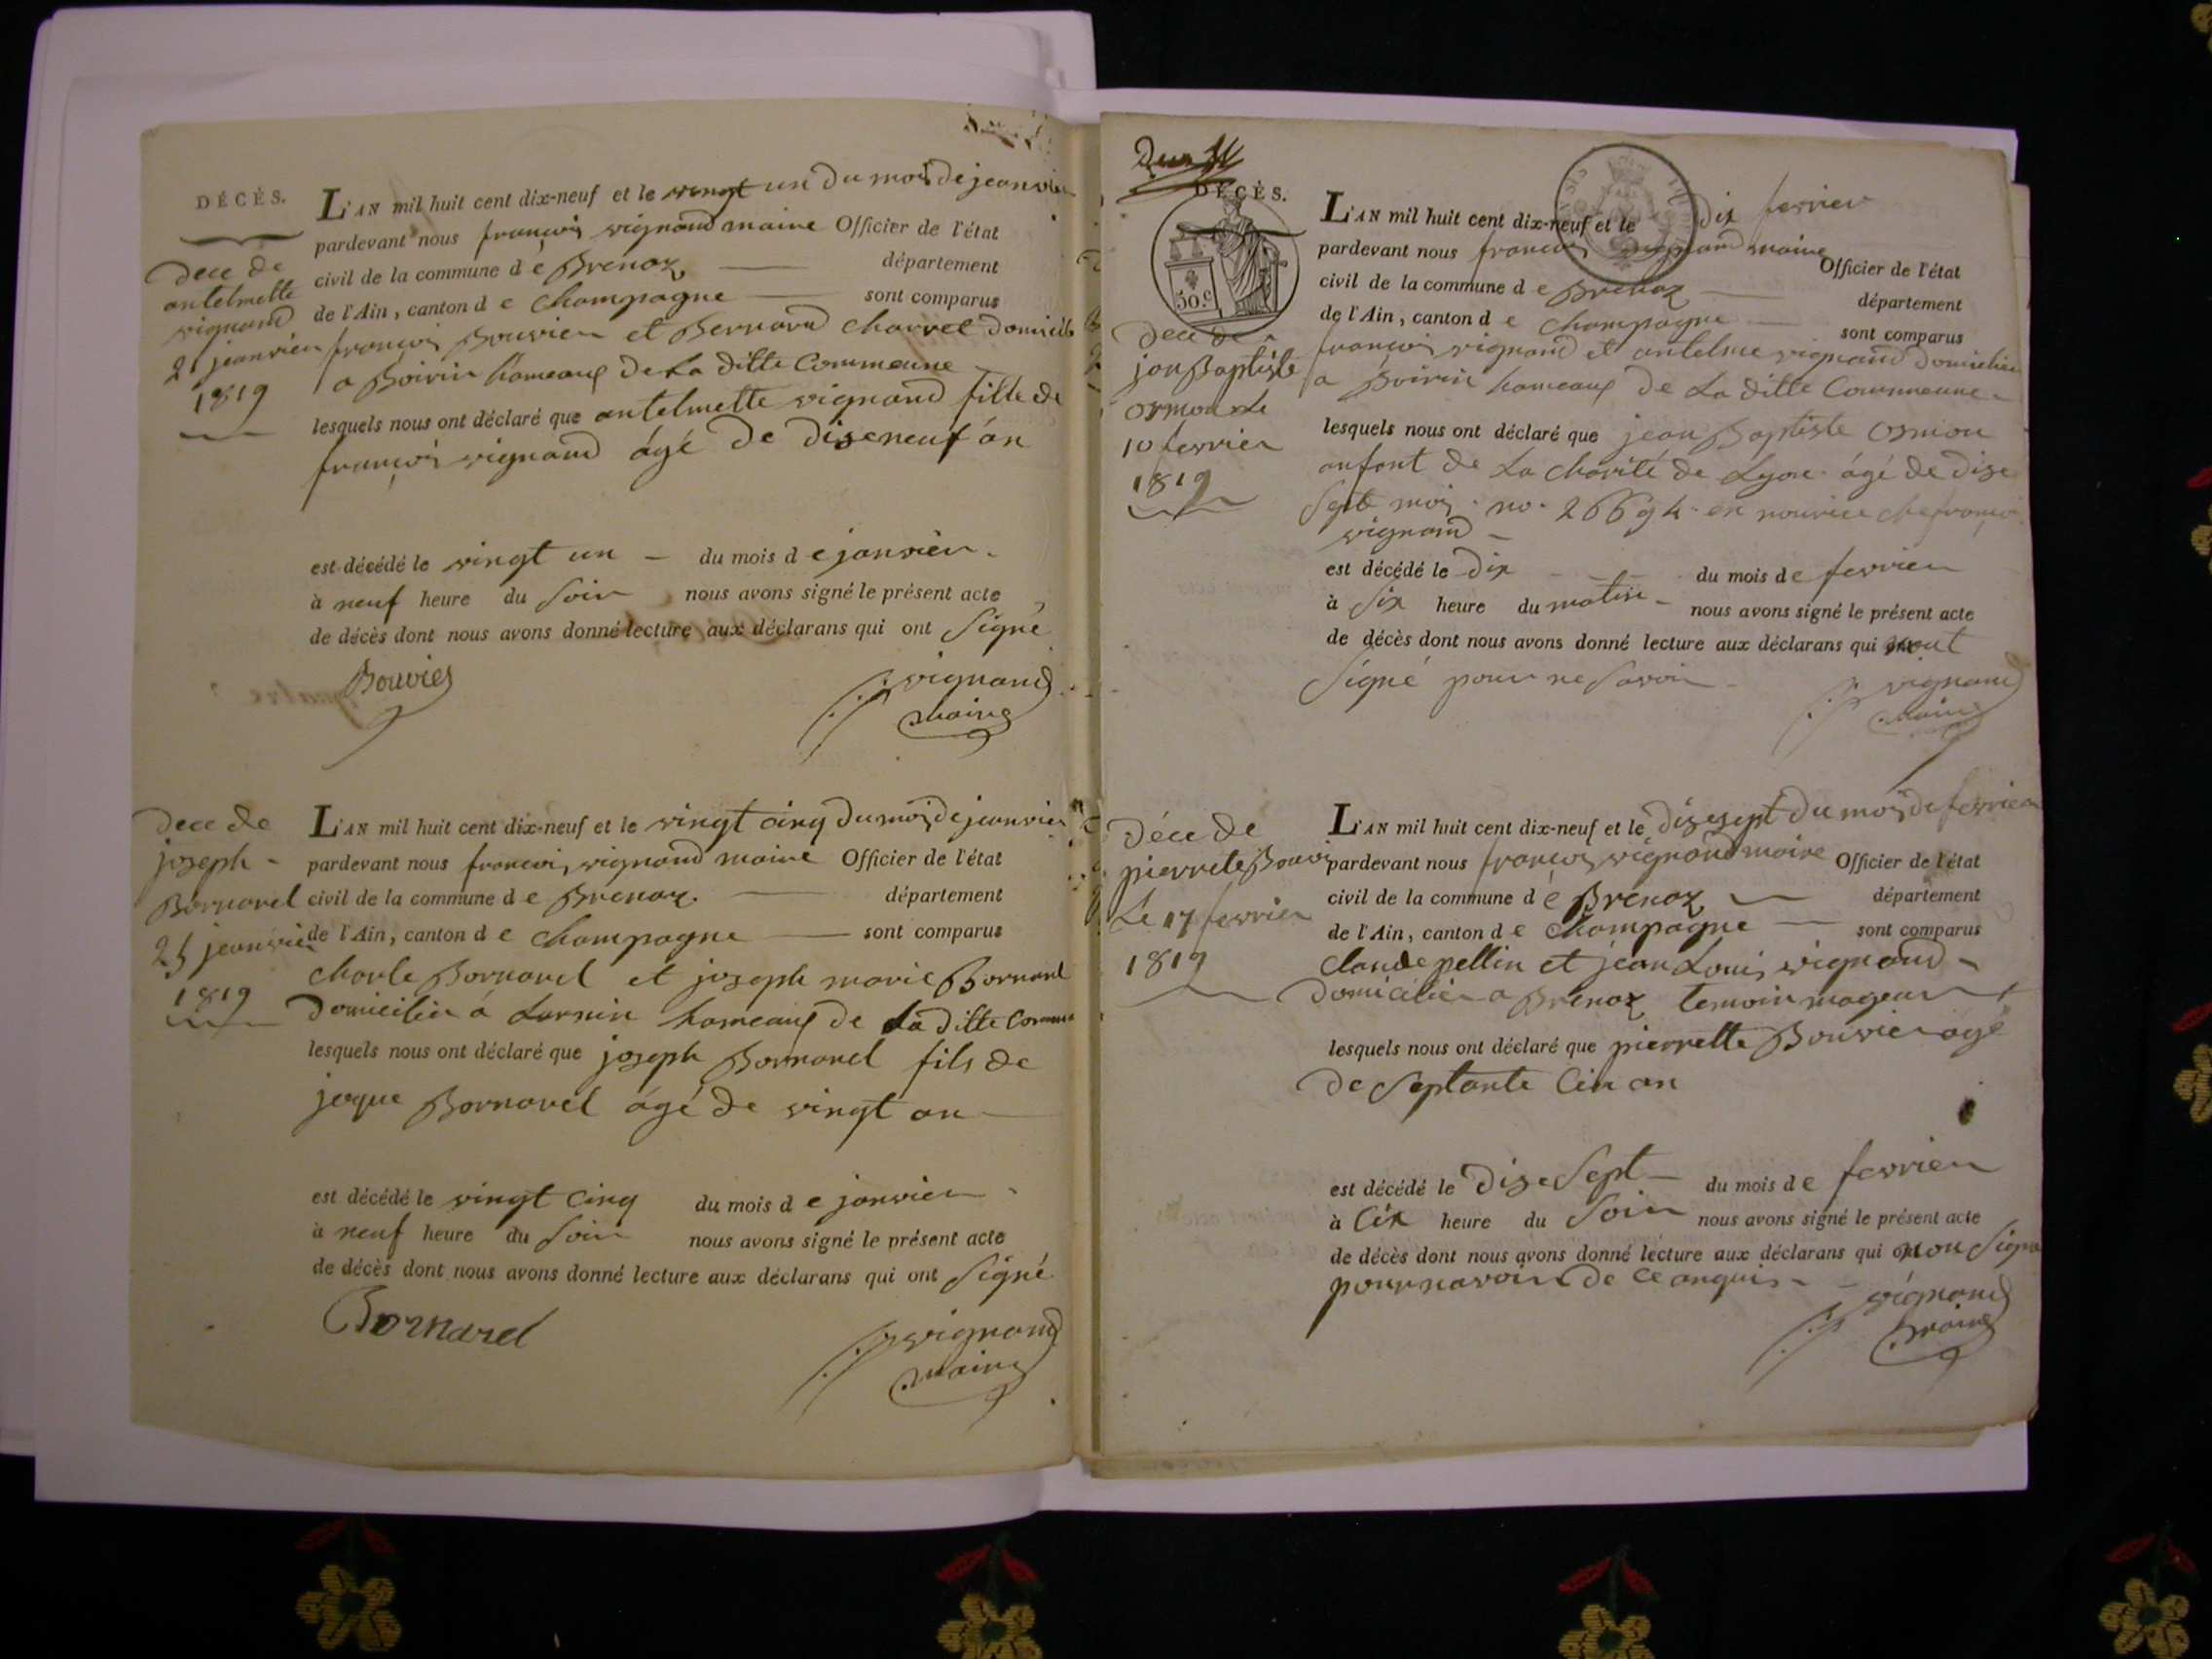 DÉCÈS.
dece de
antelmette
vignand
21 jeanvier
1819
L'AN mil huit cent dix-neuf et le vingt un du mois de jeanvier
pardevant nous françois vignand maire Officier de l'état
civil de la commune d e Brenaz département
de l'Ain, canton d e Champagne sont comparus
françois Bouvier et Bernard charvet domicilie
a Boirin hameaux de La ditte Commeune
lesquels nous ont déclaré que antelmette vignand fille de
françois vignand âgé de diseneuf án
est décédé le vingt un du mois d e janvier
à neuf heure du soir nous avons signé le présent acte
de décès dont nous avons donné lecture aux déclarans qui ont signé
Bouvier
vignand
maire
dece de
joseph
Bornarel
25 jeanvier
1819
L'AN mil huit cent dix-neuf et le vingt cinq du mois de jeanvier
pardevant nous françois vignand maire Officier de l'état
civil de la commune d e Brenaz département
de l'Ain, canton d e Champagne sont comparus
charle Bornarel et joseph marie Bornarel
domicilier á hameaux de la ditte
lesquels nous ont déclaré que joseph Bornarel fils de
jaque Bornarel âgé de vingt an
est décédé le vingt cinq du mois d e janvier
à neuf heure du soir nous avons signé le présent acte
de décès dont nous avons donné lecture aux déclarans qui ont signé
Bornarel
vignand
maire
DÉCÈS.
50.c
dece de
jan Baptiste
osmon Le
10 fevrier
1819
L'AN mil huit cent dix-neuf et le dix fevrier
pardevant nous françois vignand maire Officier de l'état
civil de la commune d e Brenaz département
de l'Ain, canton d e Champagne sont comparus
françois vignand et antelme vignand domicilier
a Boirin hameaux de La ditte Commeune
lesquels nous ont déclaré que jean Baptiste osmon
anfant de La charité de Lyon âgé de dise
sept mois no. 26694 en nourice che françois
vignand
est décédé le dix du mois d e fevrier
à six heure du matin nous avons signé le présent acte
de décès dont nous avons donné lecture aux déclarans qui nont
signé pour ne savoir
vignand
maire
déce de
pierrete Bouvier
Le 17 fevrier
1819
L'AN mil huit cent dix-neuf et le disesept du mois de fevrier
pardevant nous françois vignand maire Officier de l'état
civil de la commune d e Brenaz département
de l'Ain, canton d e Champagne sont comparus
Claude pellin et jean Louis vignand
domicilier a Brenaz temoin mageur
lesquels nous ont déclaré que pierrette Bouvier agé
de septante Cin an
est décédé le dise sept du mois d e fevrier
à Cix heure du soir nous avons signé le présent acte
de décès dont nous avons donné lecture aux déclarans qui non signé
pour navoir de ce anquis
vignand
maire